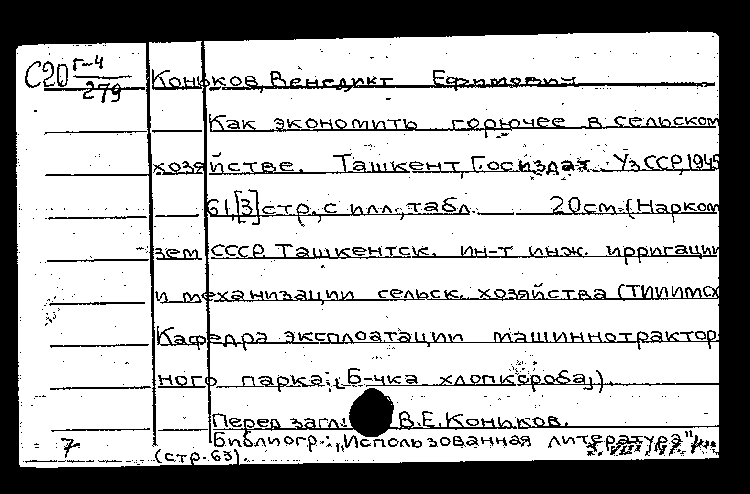 С20 Г-4
279
Коньков, Венедикт Ефимович
Как экономить горючее в сельском
хозяйстве. Ташкент, Госиздат УзССР, 1945
61,[3] стр., с илл., табл. 20см. (Нарком
зем СССР. Ташкентск. ин-т инж. ирригации
и механизации сельск. хозяйства (ТИИИМСХ
Кафедра эксплоатации машиннотрактор
ного парка; „Б-чка хлопкороба„).
Перед загл: В.Е. Коньков.
Библиогр.: „Использованная литература"
(стр. 63).
7